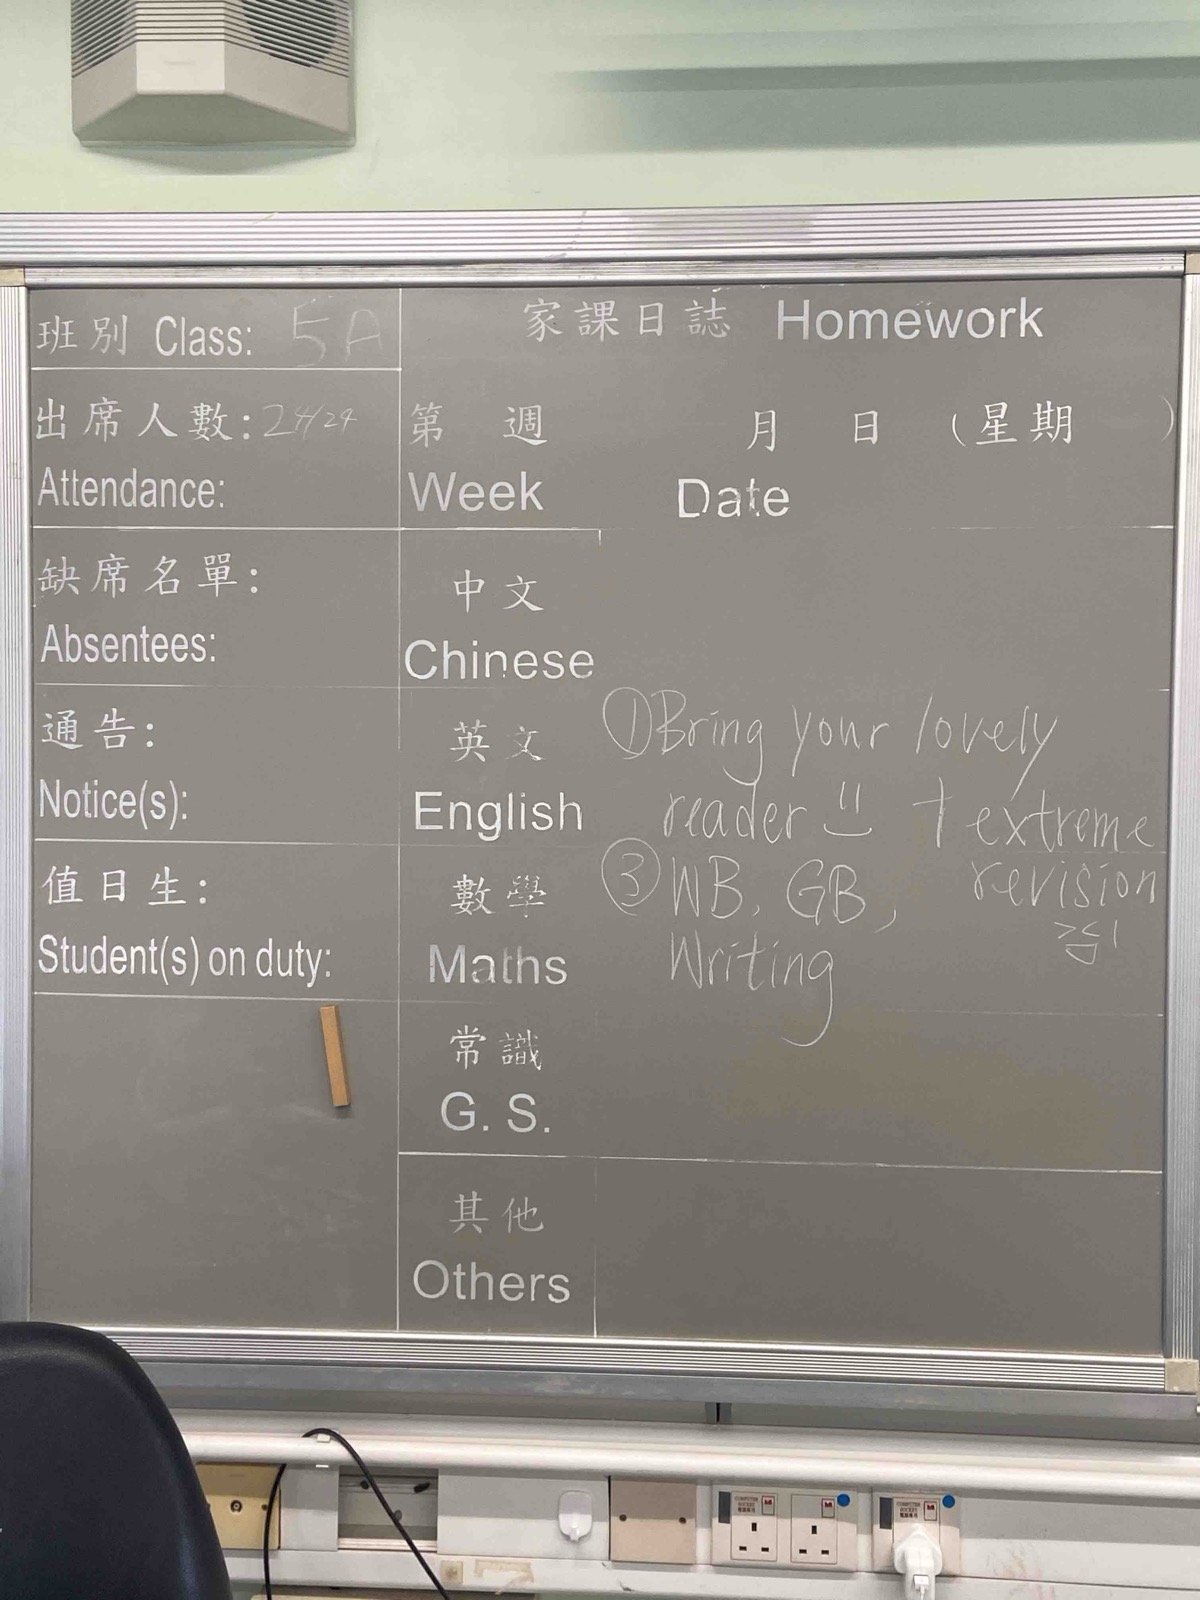 班別 Class: 5A
出席人數: 24/24
Attendance:
缺席名單:
Absentees:
通告:
Notice(s):
值日生:
Student(s) on duty:
家課日誌 Homework
第 週 月 日 (星期 )
Week Date
中文
Chinese
英文
English
① Bring your lovely
reader + extreme
revision
③ WB, GB,
Writing
數學
Maths
常識
G. S.
其他
Others
COMPUTER
SOCKET
COMPUTER
SOCKET